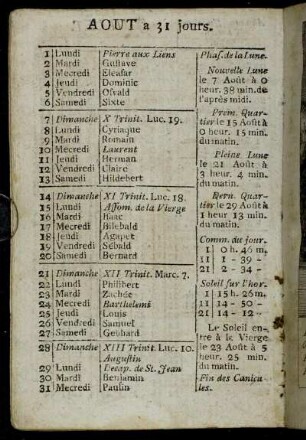 AOUT a 31 jours.
1 Lundi Pierre aux Liens
2 Mardi Gustave
3 Mecredi Eleasar
4 Jeudi Dominic
5 Vendredi Osvald
6 Samedi Sixte
7 Dimanche X Trinit. Luc. 19.
8 Lundi Cyriaque
9 Mardi Romain
10 Mecredi Laurent
11 Jeudi Herman
12 Vendredi Claire
13 Samedi Hildebert
14 Dimanche XI Trinit. Luc. 18.
15 Lundi Assom. de la Vierge
16 Mardi Isaac
17 Mecredi Bilebald
18 Jeudi Agapet
19 Vendredi Sebald
20 Samedi Bernard
21 Dimanche XII Trinit. Marc. 7.
22 Lundi Philibert
23 Mardi Zachée
24 Mecredi Barthelemi
25 Jeudi Louis
26 Vendredi Samuel
27 Samedi Gebhard
28 Dimanche XIII Trinit. Luc. 10.
Augustin
29 Lundi Decap. de St. Jean
30 Mardi Benjamin
31 Mecredi Paulin
Phas. de la Lune.
Nouvelle Lune
le 7 Août à 0
heure. 38 min. de
l'après midi.
Prem. Quar-
tier le 15 Août à
0 heur. 15 min.
du matin.
Pleine Lune
le 21 Août à
3 heur. 4 min.
du matin.
Dern. Quar-
tier le 29 Août à
1 heur 13 min.
du matin.
Comm. de jour.
1 0 h. 46 m,
11 1 - 39 -
21 2 - 34 -
Soleil sur l'hor.
1 15 h. 26 m.
11 14 - 50 -
21 14 - 12 -
Le Soleil en-
tre à le Vierge
le 23 Août à 5
heur. 25 min.
du matin.
Fin des Canicu-
les.